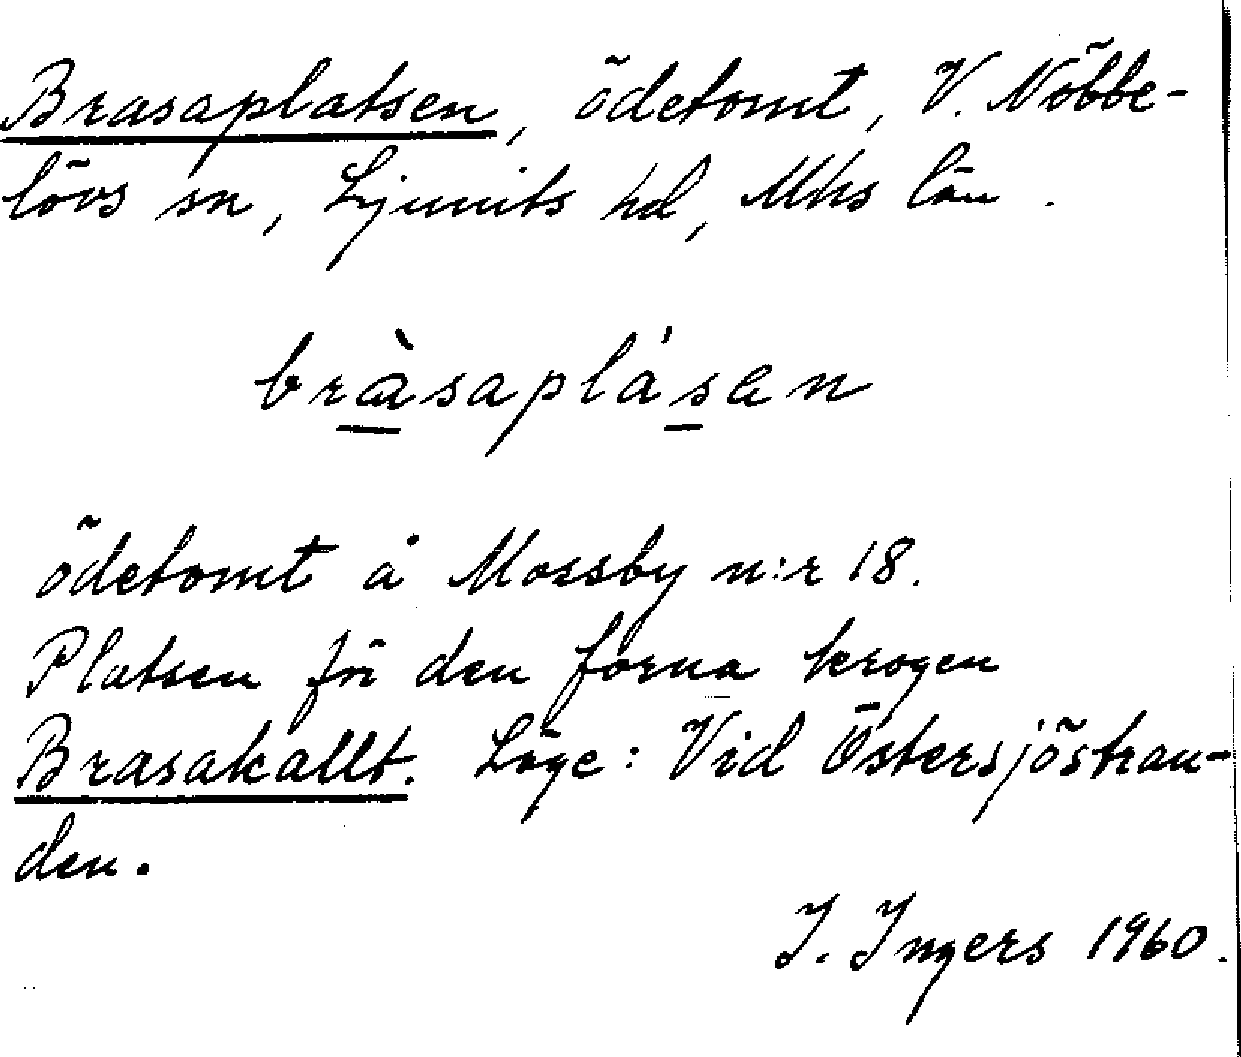 Brasaplatsen, ödetomt, V. Nöbbe-
lövs sn, Ljunits hd, Mhs län.
bràsaplásen
ödetomt å Mossby n:r 18.
Platsen för den forna krogen
Brasakallt. Läge: Vid Östersjöstran-
den.
I. Ingers 1960.